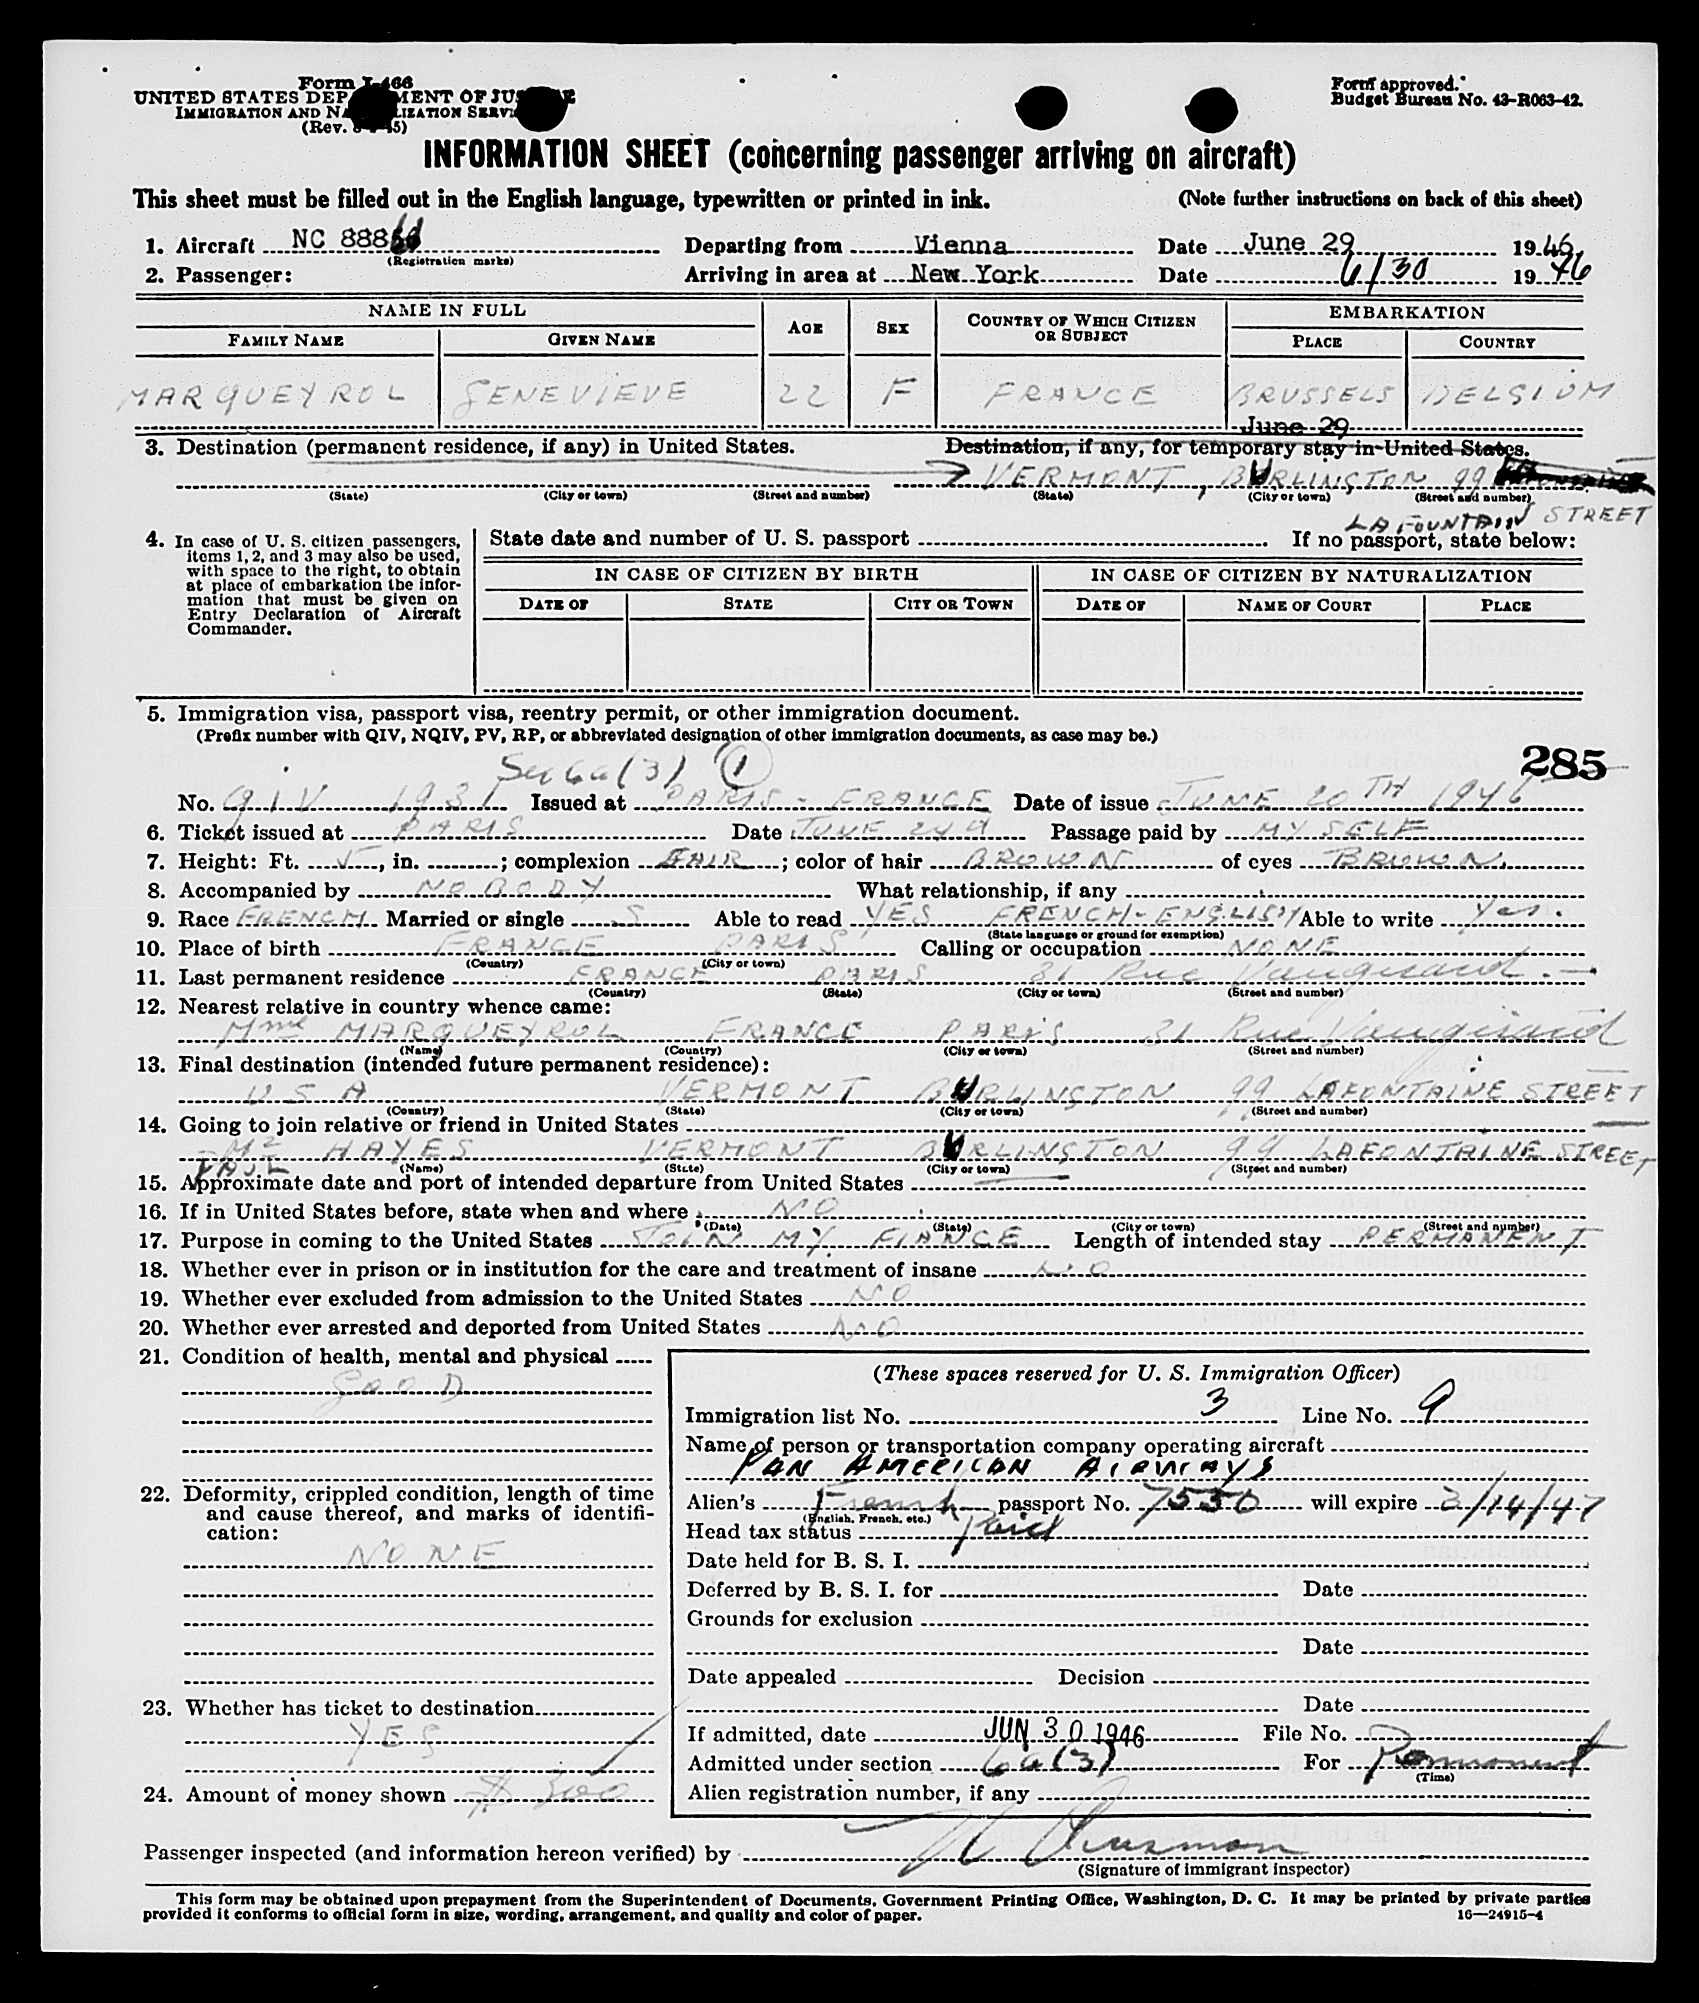 Form I-466
UNITED STATES DEPARTMENT OF JUSTICE
IMMIGRATION AND NATURALIZATION SERVICE
(Rev. 5)
Form approved.
Budget Bureau No. 43-R063-42.
INFORMATION SHEET (concerning passenger arriving on aircraft)
This sheet must be filled out in the English language, typewritten or printed in ink. (Note further instructions on back of this sheet)
1. Aircraft NC 888 Departing from Vienna Date June 29 1946
(Registration marks)
2. Passenger: Arriving in area at New York Date 6/30 1946
NAME IN FULL AGE SEX COUNTRY OF WHICH CITIZEN OR SUBJECT EMBARKATION
FAMILY NAME GIVEN NAME PLACE COUNTRY
MARQUEYROL GENEVIEVE 22 F FRANCE BRUSSELS BELGIUM
June 29
3. Destination (permanent residence, if any) in United States. Destination, if any, for temporary stay in United States.
VERMONT, BURLINGTON 99
(State) (City or town) (Street and number) (State) (City or town) (Street and number)
LAFOUNTAIN STREET
4. In case of U. S. citizen passengers, items 1, 2, and 3 may also be used, with space to the right, to obtain at place of embarkation the information that must be given on Entry Declaration of Aircraft Commander.
State date and number of U. S. passport If no passport, state below:
IN CASE OF CITIZEN BY BIRTH IN CASE OF CITIZEN BY NATURALIZATION
DATE OF STATE CITY OR TOWN DATE OF NAME OF COURT PLACE
5. Immigration visa, passport visa, reentry permit, or other immigration document.
(Prefix number with QIV, NQIV, PV, RP, or abbreviated designation of other immigration documents, as case may be.)
285
Sec 6a(3) 1
No. QIV 1931 Issued at PARIS - FRANCE Date of issue JUNE 20TH 1946
6. Ticket issued at PARIS Date JUNE 24 Passage paid by MYSELF
7. Height: Ft. 5, in. ; complexion FAIR; color of hair BROWN of eyes BROWN
8. Accompanied by NOBODY What relationship, if any
9. Race FRENCH Married or single S Able to read YES FRENCH-ENGLISH Able to write Yes.
(State language or ground for exemption)
10. Place of birth FRANCE PARIS Calling or occupation NONE
(Country) (City or town)
11. Last permanent residence FRANCE PARIS 31 Rue Vaugirard
(Country) (State) (City or town) (Street and number)
12. Nearest relative in country whence came:
Mme MARQUEYROL FRANCE PARIS 31 Rue Vaugirard
(Name) (Country) (City or town) (Street and number)
13. Final destination (intended future permanent residence):
USA VERMONT BURLINGTON 99 LAFONTAINE STREET
(Country) (State) (City or town) (Street and number)
14. Going to join relative or friend in United States
Mr HAYES VERMONT BURLINGTON 99 LAFONTAINE STREET
PAUL (Name) (State) (City or town) (Street and number)
15. Approximate date and port of intended departure from United States
16. If in United States before, state when and where NO
(Date) (State) (City or town) (Street and number)
17. Purpose in coming to the United States JOIN MY FIANCE Length of intended stay PERMANENT
18. Whether ever in prison or in institution for the care and treatment of insane NO
19. Whether ever excluded from admission to the United States NO
20. Whether ever arrested and deported from United States NO
21. Condition of health, mental and physical
GOOD
22. Deformity, crippled condition, length of time and cause thereof, and marks of identification:
NONE
23. Whether has ticket to destination
YES
24. Amount of money shown $ 300
(These spaces reserved for U. S. Immigration Officer)
Immigration list No. 3 Line No. 9
Name of person or transportation company operating aircraft
PAN AMERICAN AIRWAYS
Alien's French passport No. 7550 will expire 2/14/47
(English, French, etc.)
Head tax status Paid
Date held for B. S. I.
Deferred by B. S. I. for Date
Grounds for exclusion
Date
Date appealed Decision
Date
If admitted, date JUN 30 1946 File No.
Admitted under section 6a(3) For Permanent
(Time)
Alien registration number, if any
Passenger inspected (and information hereon verified) by
(Signature of immigrant inspector)
This form may be obtained upon prepayment from the Superintendent of Documents, Government Printing Office, Washington, D. C. It may be printed by private parties
provided it conforms to official form in size, wording, arrangement, and quality and color of paper.
16—24915-4